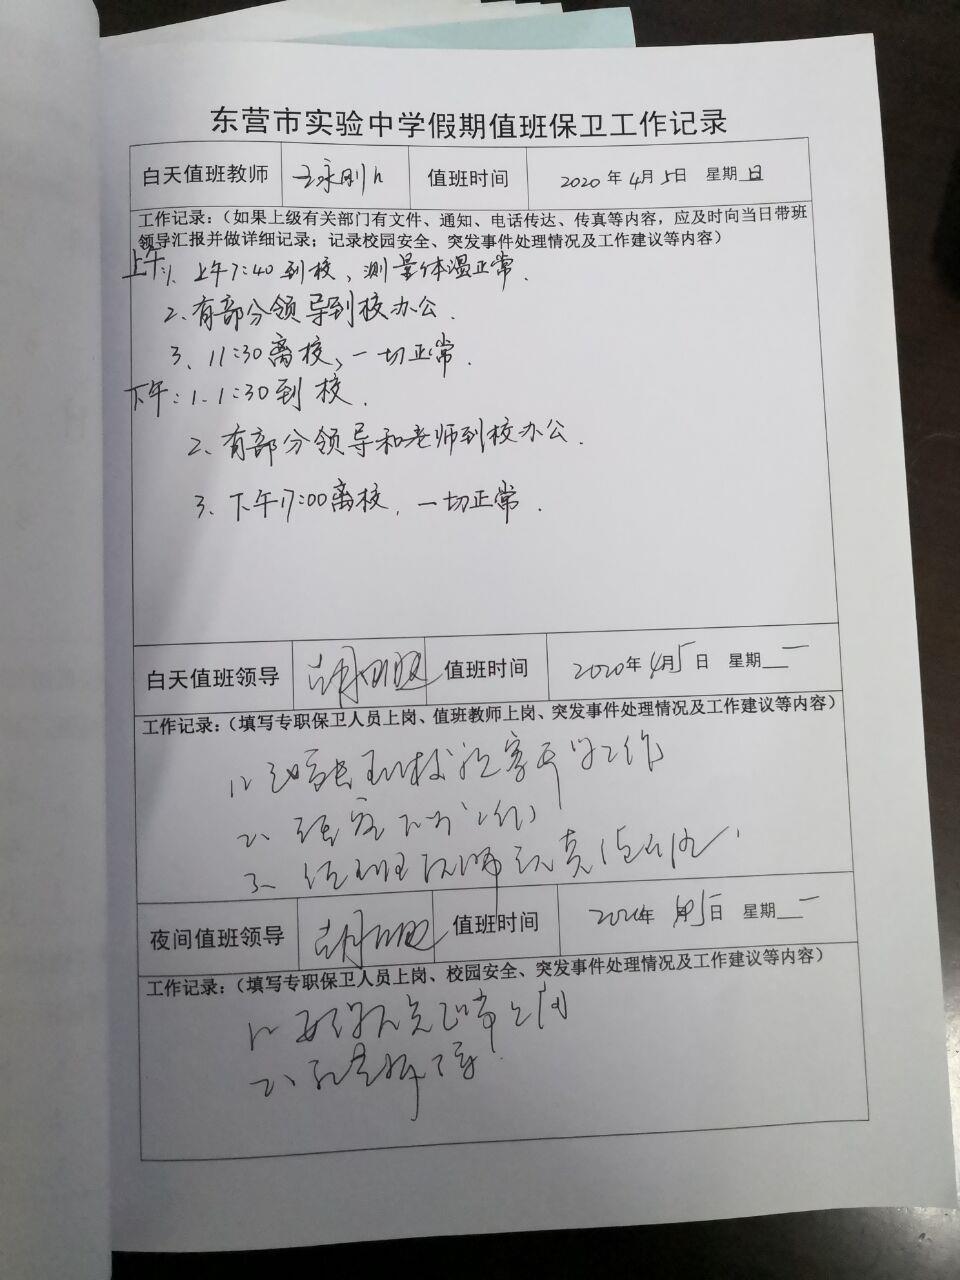 东营市实验中学假期值班保卫工作记录
白天值班教师 王永刚 值班时间 2020年4月5日 星期日
工作记录：（如果上级有关部门有文件、通知、电话传达、传真等内容，应及时向当日带班
领导汇报并做详细记录；记录校园安全、突发事件处理情况及工作建议等内容）
上午：1、上午7:40到校、测量体温正常.
2、有部分领导到校办公.
3、11:30离校、一切正常.
下午：1、1:30到校.
2、有部分领导和老师到校办公.
3、下午17:00离校，一切正常.
白天值班领导 值班时间 2020年4月5日 星期一
工作记录：（填写专职保卫人员上岗、值班教师上岗、突发事件处理情况及工作建议等内容）
1、到校 工作
2、
3、值班
夜间值班领导 值班时间 2020年 5日 星期一
工作记录：（填写专职保卫人员上岗、校园安全、突发事件处理情况及工作建议等内容）
1、正常上岗
2、